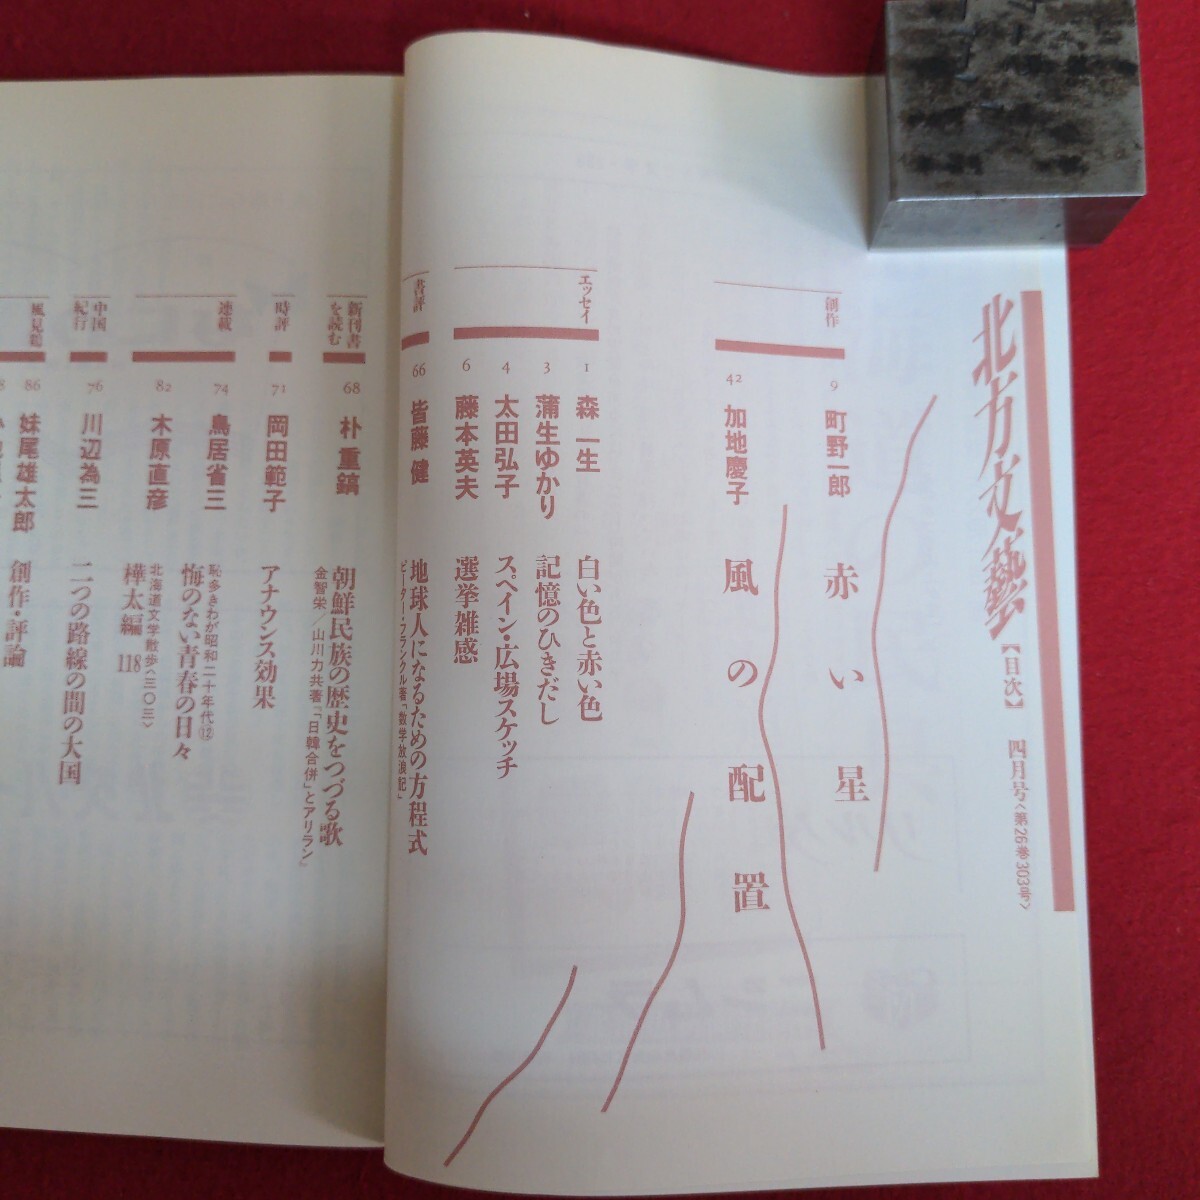 北方文藝
【目次】
四月号〈第26巻303号〉
創作
9
町野一郎
赤い星
42
加地慶子
風の配置
エッセイ
1
森一生
白い色と赤い色
3
蒲生ゆかり
記憶のひきだし
4
太田弘子
スペイン・広場スケッチ
6
藤本英夫
選挙雑感
書評
66
皆藤健
地球人になるための方程式
ピーター・フランクル著「数学放浪記」
新刊書を読む
68
朴重鎬
朝鮮民族の歴史をつづる歌
金智栄／山川力共著『「日韓合併」とアリラン』
時評
71
岡田範子
アナウンス効果
連載
74
鳥居省三
恥多きわが昭和二十年代⑫
悔のない青春の日々
82
木原直彦
北海道文学散歩〈三〇三〉
樺太編 118
中国紀行
76
川辺為三
二つの路線の間の大国
風見鶏
86
妹尾雄太郎
創作・評論